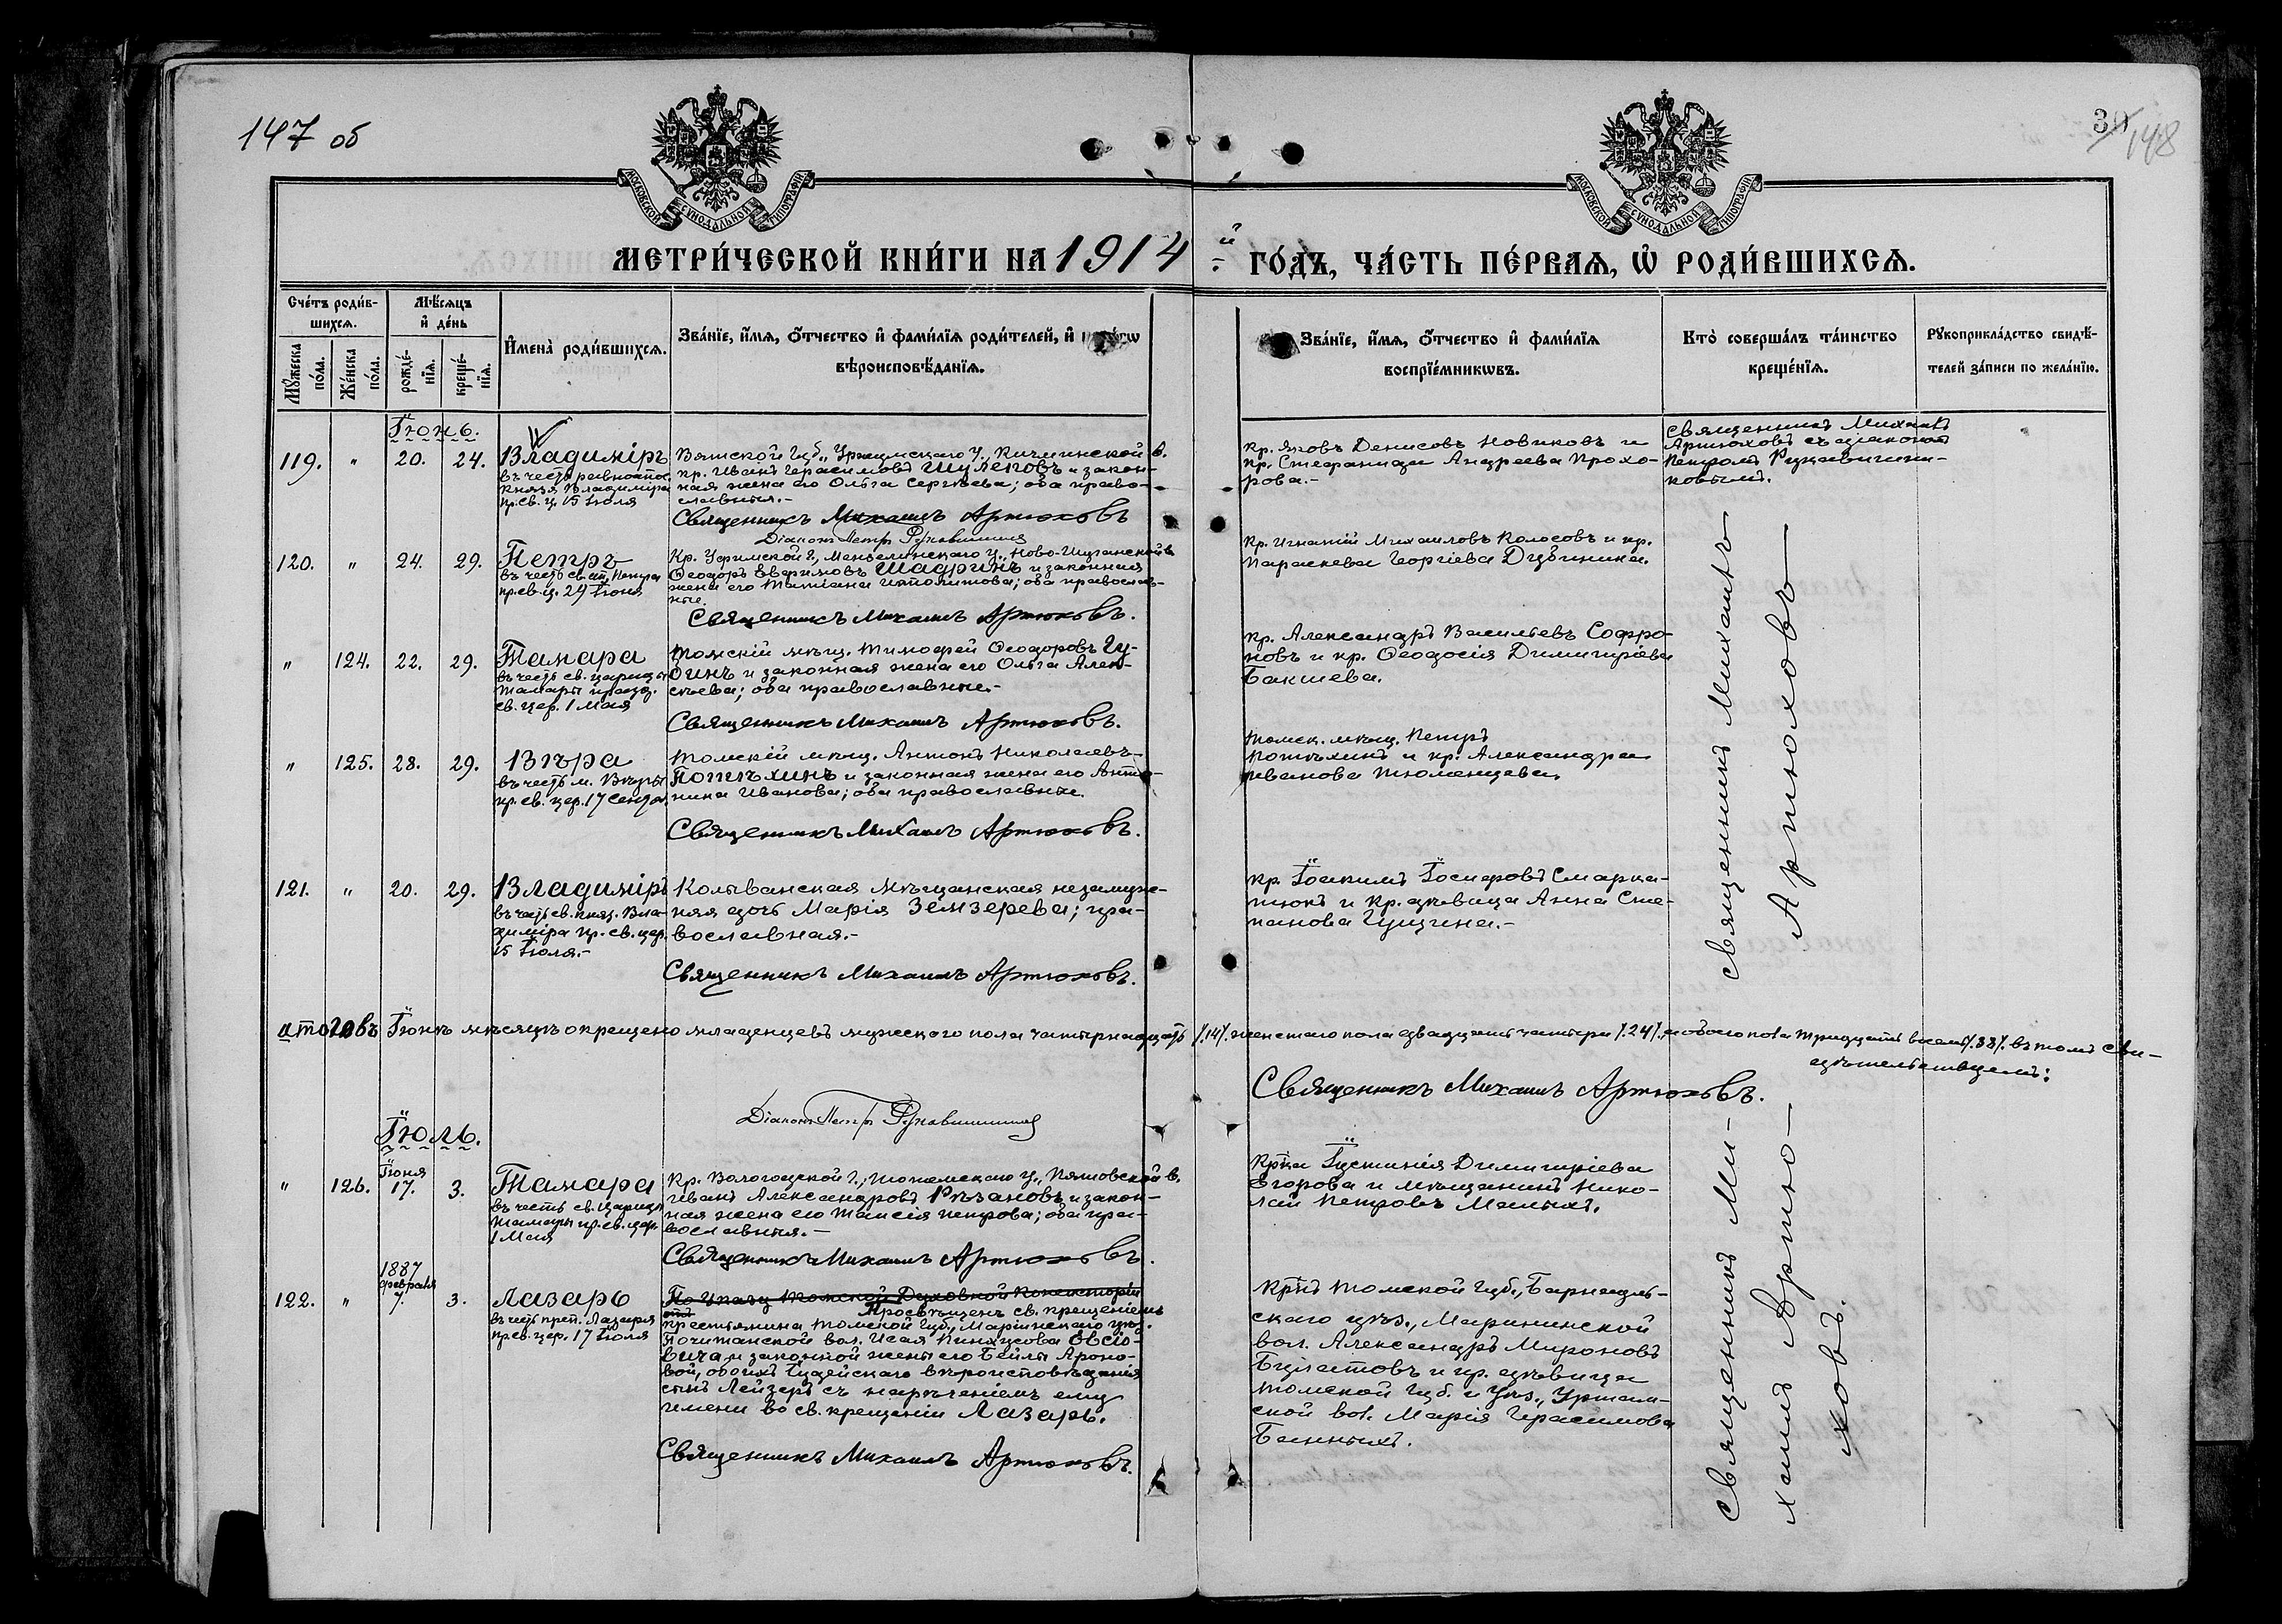 147 об
30
148
МОСКОВСКОЙ СѴНОДАЛЬНОЙ ТИПОГРАФІИ
МОСКОВСКОЙ СѴНОДАЛЬНОЙ ТИПОГРАФІИ
МЕТРИ́ЧЕСКОЙ КНИ́ГИ НА 1914 й ГО́ДЪ, ЧА́СТЬ ПЕ́РВАѦ, Ѡ҆ РОДИ́ВШИХСѦ.
Сче́тъ роди́в-
шихсѧ.
Мꙋ́жеска по́ла.
Же́нска по́ла.
Мѣ́сѧцъ
и҆ де́нь
рожде́-
нїѧ.
креще́-
нїѧ.
И҆мена̀ роди́вшихсѧ.
Зва́нїе, и҆́мѧ, ѻ҆́тчество и҆ фами́лїѧ роди́телей, и҆
вѣроисповѣ́данїѧ.
Зва́нїе, и҆́мѧ, ѻ҆́тчество и҆ фами́лїѧ
воспрїе́мникѡвъ.
Кто̀ соверша́лъ та́инство
креще́нїѧ.
Рꙋкоприкла́дство свидѣ́-
телей за́писи по жела́нїю.
Іюнь.
119. " 20. 24.
Владиміръ
въ честь равноапос.
Князя Владиміра
пр. св. ц. 15 Іюля
Вятской Губ., Уржумскаго У., Кичминской в.
кр. Иванъ Герасимовъ Шулеповъ и закон-
ная жена его Ольга Сергѣева; оба право-
славныя.-
Священникъ Михаилъ Артюховъ
Діаконъ Петръ Рукавишниковъ
кр. Яковъ Денисовъ Новиковъ и
кр. Стефанида Андреева Прохо-
рова.-
Священникъ Михаилъ
Артюховъ съ діакономъ
Петромъ Рукавишни-
ковымъ.
120. " 24. 29.
Петръ
въ честь св. ап. Петра
пр. св. ц. 29 Іюня
Кр. Уфимской г., Мензелинскаго у., Ново-
Ѳеодоръ Евфимовъ Шадринъ и законная
жена его Татіана Ипполитова; оба православ-
ные.
Священникъ Михаилъ Артюховъ.
Кр. Игнатій Михаиловъ Колосовъ и кр.
Параскева Георгіева Дубинина.
" 124. 22. 29.
Тамара
въ честь св. царицы
Тамары празд.
св. цер. 1 Мая
Томскій мѣщ. Тимофей Ѳеодоровъ Гу-
бинъ и законная жена его Ольга Алек-
сѣева; оба православные.-
Священникъ Михаилъ Артюховъ.
кр. Александръ Васильевъ Софро-
новъ и кр. Ѳеодосія Димитріева
Бакшева.
" 125. 28. 29.
Вѣра
въ честь м. Вѣры
пр. св. цер. 17 Сентяб.
Томскій мѣщ. Антонъ Николаевъ-
Потѣхинъ и законная жена его Анто-
нина Иванова; оба православные.
Священникъ Михаилъ Артюховъ.
Томск. мѣщ. Петръ
Потѣхинъ и кр. Александра
Иванова Тюменцева.
121. " 20. 29.
Владиміръ
въ честь св. княз. Вла-
диміра пр. св. цер.
15 Іюля.-
Колыванская мѣщанская незамуж-
няя дочь Марія Земзерева; пра-
вославная.-
Священникъ Михаилъ Артюховъ.
кр. Іоакимъ Іосифовъ Смарка-
тюкъ и кр. дѣвица Анна Сте-
панова Гущина.-
Священникъ Михаилъ
Артюховъ
Итого въ Іюнѣ мѣсяцѣ окрещено младенцевъ мужескаго пола четырнадцать /.14/. женскаго пола двадцать четыри /.24/. и обоего пола тридцать восемь /.38/. въ томъ сви-
дѣтельствуемъ:
Священникъ Михаилъ Артюховъ.
Діаконъ Петръ Рукавишниковъ
Іюль.
" 126. Іюня 17. 3.
Тамара
въ честь св. Царицы
Тамары пр. св. цер.
1 Мая
Кр. Вологодской г., Тотемскаго у., Пятовской в.
Иванъ Александровъ Рѣзановъ и закон-
ная жена его Таисія Петрова; оба пра-
вославныя.-
Священникъ Михаилъ Артюховъ.
Кр-ка Іустинія Димитріева
Егорова и мѣщанинъ Нико-
лай Петровъ Малыхъ.
122. " 1887 февраля 7. 3.
Лазарь
въ честь преп. Лазаря
пр. св. цер. 17 Іюля
По Указу Томской Духовной Консисторіи
Просвѣщенъ св. крещеніемъ
крестьянина Томской губ., Маріинскаго уѣз.
Почитанской вол. Исая Пинхусова Евсіо-
вича, и законной жены его Бейлы Ароно-
вой, обоихъ Іудейскаго вѣроисповѣданія
сынъ Лейзеръ съ нареченіемъ ему
имени во св. крещеніи Лазарь.
Священникъ Михаилъ Артюховъ.
Кр-нъ Томской Губ., Барнауль-
скаго уѣз., Марининской
вол. Александръ Мироновъ
Булатовъ и кр. дѣвица
Томской Губ. и Уѣз., Уртам-
ской вол. Марія Герасимова
Банныхъ.
Священникъ Ми-
хаилъ Артю-
ховъ.